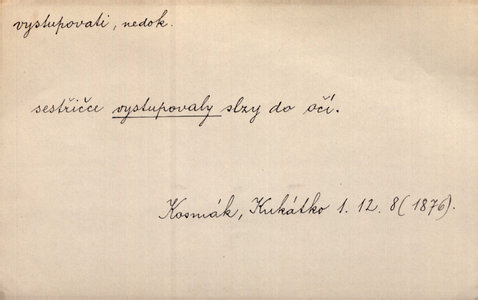 vystupovati, nedok.
sestřičce vystupovaly slzy do očí.
Kosmák, Kukátko 1. 12. 8 (1876).